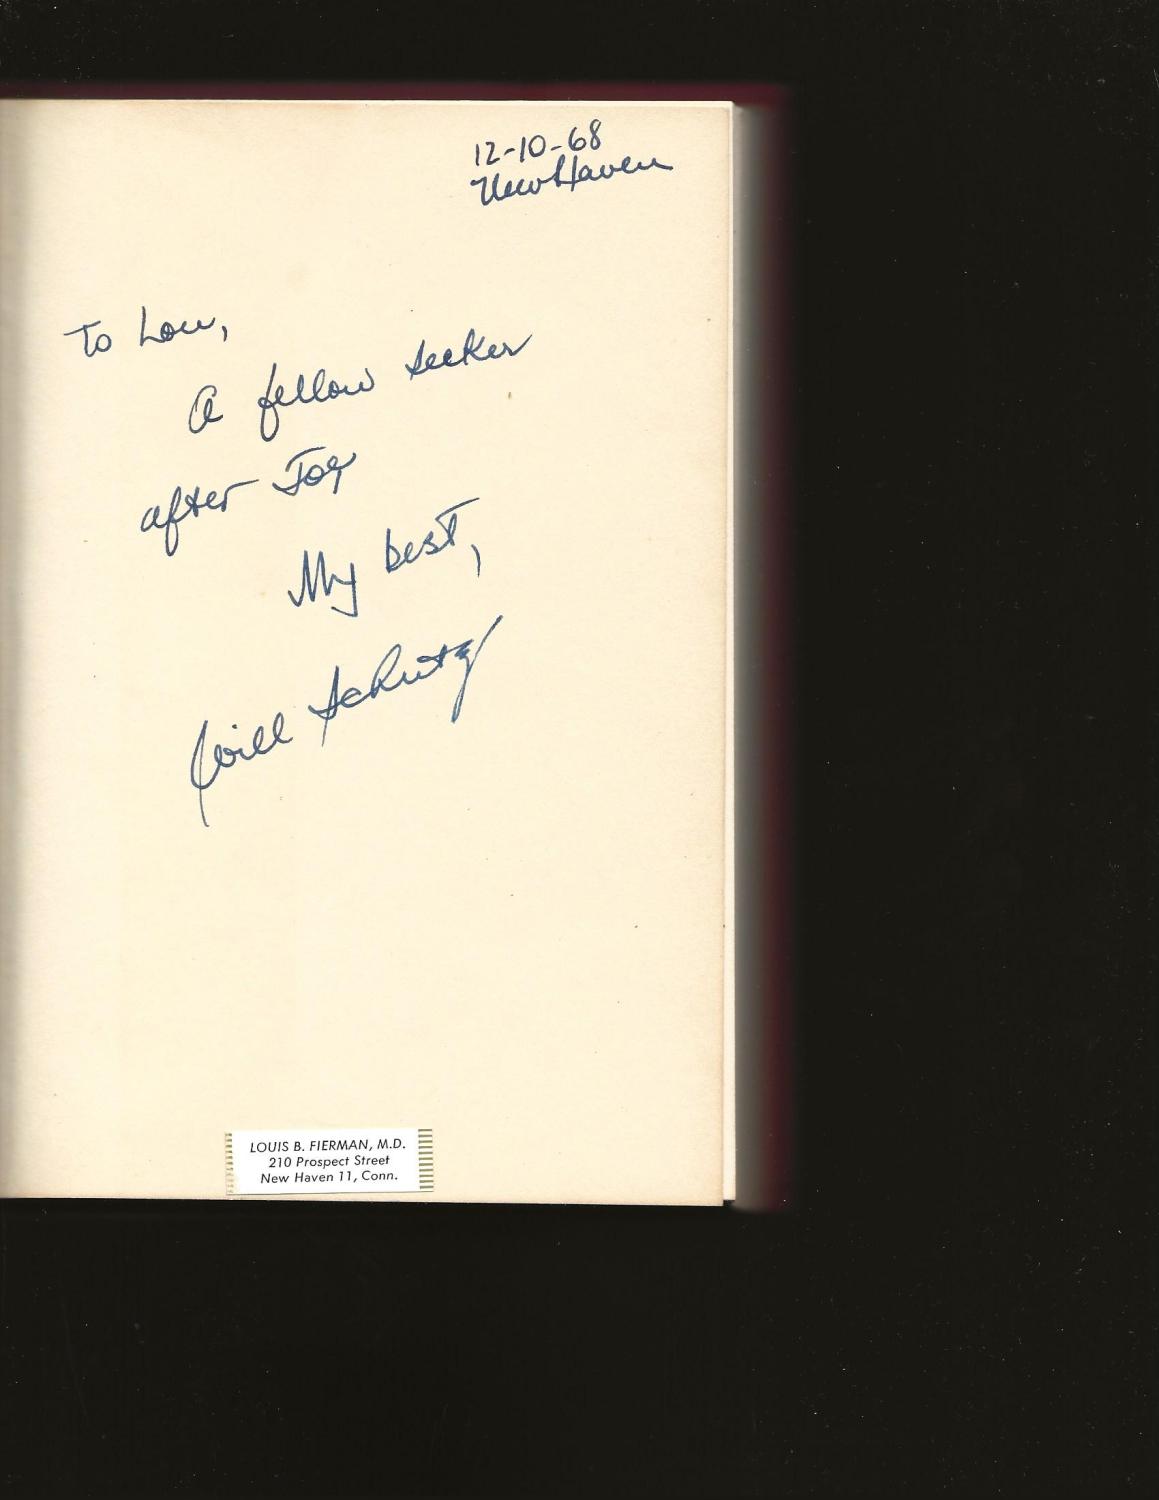 12-10-68
New Haven
To Lou,
A fellow seeker
after Joy
My best,
Will Schutz
LOUIS B. FIERMAN, M.D.
210 Prospect Street
New Haven 11, Conn.